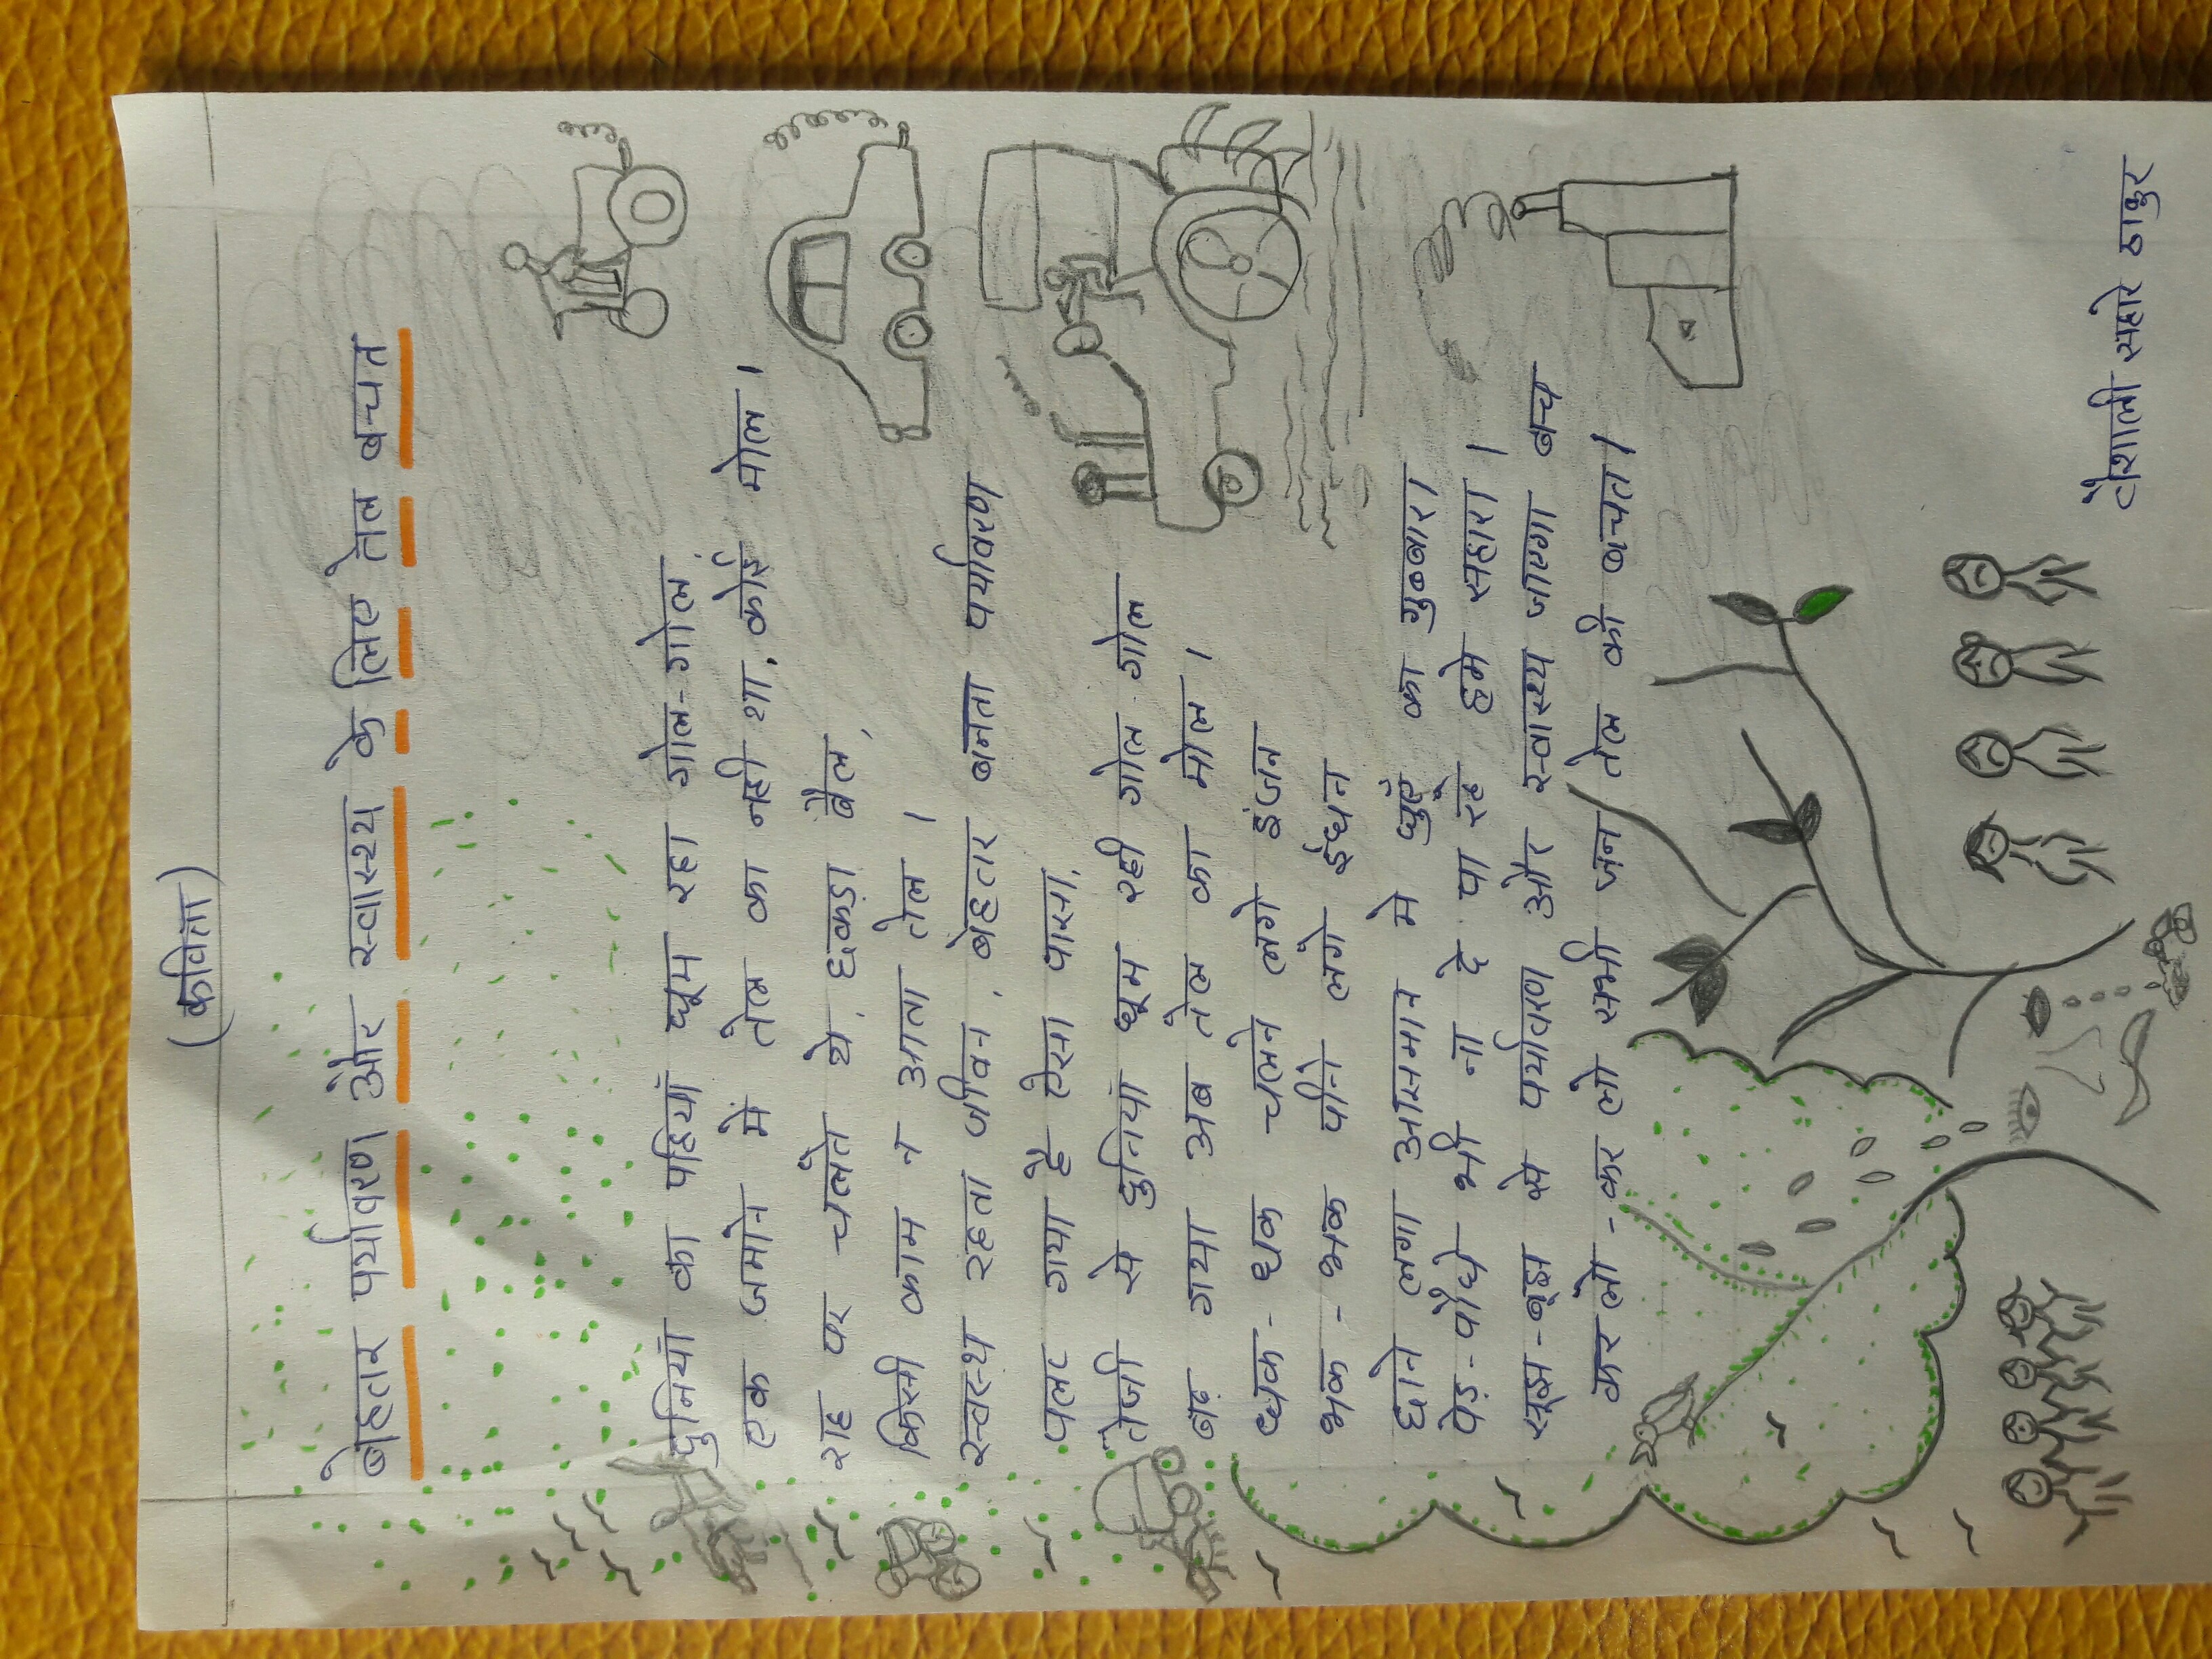 (कविता)
बेहतर पर्यावरण और स्वास्थ्य के लिए तेल बचत
दुनियाँ का पहियाँ घूम रहा गोल-गोल
एक जमाने में तेल का नही था, कोई मोल।
राह पर चलते थे, छकड़ा बैल,
किसी काम न आता तेल।
स्वस्थ रहता जीवन, बेहतर बनता पर्यावरण
पलट गया है ऐसा पासा,
तेजी से दुनियाँ घूम रही गोल गोल
बढ़ गया अब तेल का मोल।
धक-धक चलने लगे इंजन
भक-भक पीने लगे ईंधन
छाने लगा आसमान मे धुएँ का गुब्बारा
पेड़-पौधे भी ना दे पा रहे हमे सहारा।
सूझ-बूझ से पर्यावरण और स्वास्थ्य जाएगा बच
कर लो -कर लो सभी जन तेल की बचत।
वैशाली सहारे ठाकुर